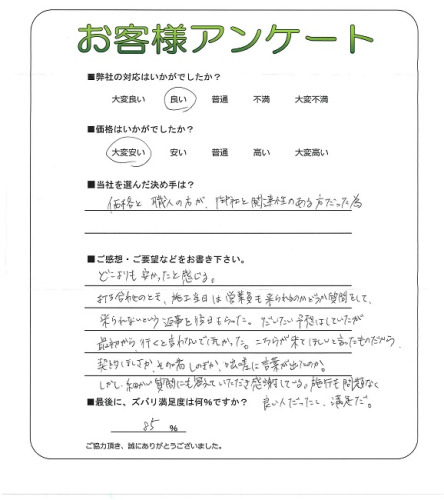 お客様アンケート
■弊社の対応はいかがでしたか?
大変良い 良い 普通 不満 大変不満
■価格はいかがでしたか?
大変安い 安い 普通 高い 大変高い
■当社を選んだ決め手は?
価格と 職人の方が、 と関連性のある方だった為
■ご感想・ご要望などをお書き下さい。
どこよりも安かったと感じる。
打ち合わせのとき、施工当日は営業員も来られるのかどうか質問をして、
来られないという返事を もらった。だいたい予想はしていたが
最初から行くと言わないで良かった。こちらが来てほしいと言ったものだから、
契約ほしさか、その為 に言葉が出たのか。
しかし細かい質問にも答えていただき感謝してる。施行も問題なく
良い人だったし、満足だ。
■最後に、ズバリ満足度は何%ですか?
85 %
ご協力頂き、誠にありがとうございました。